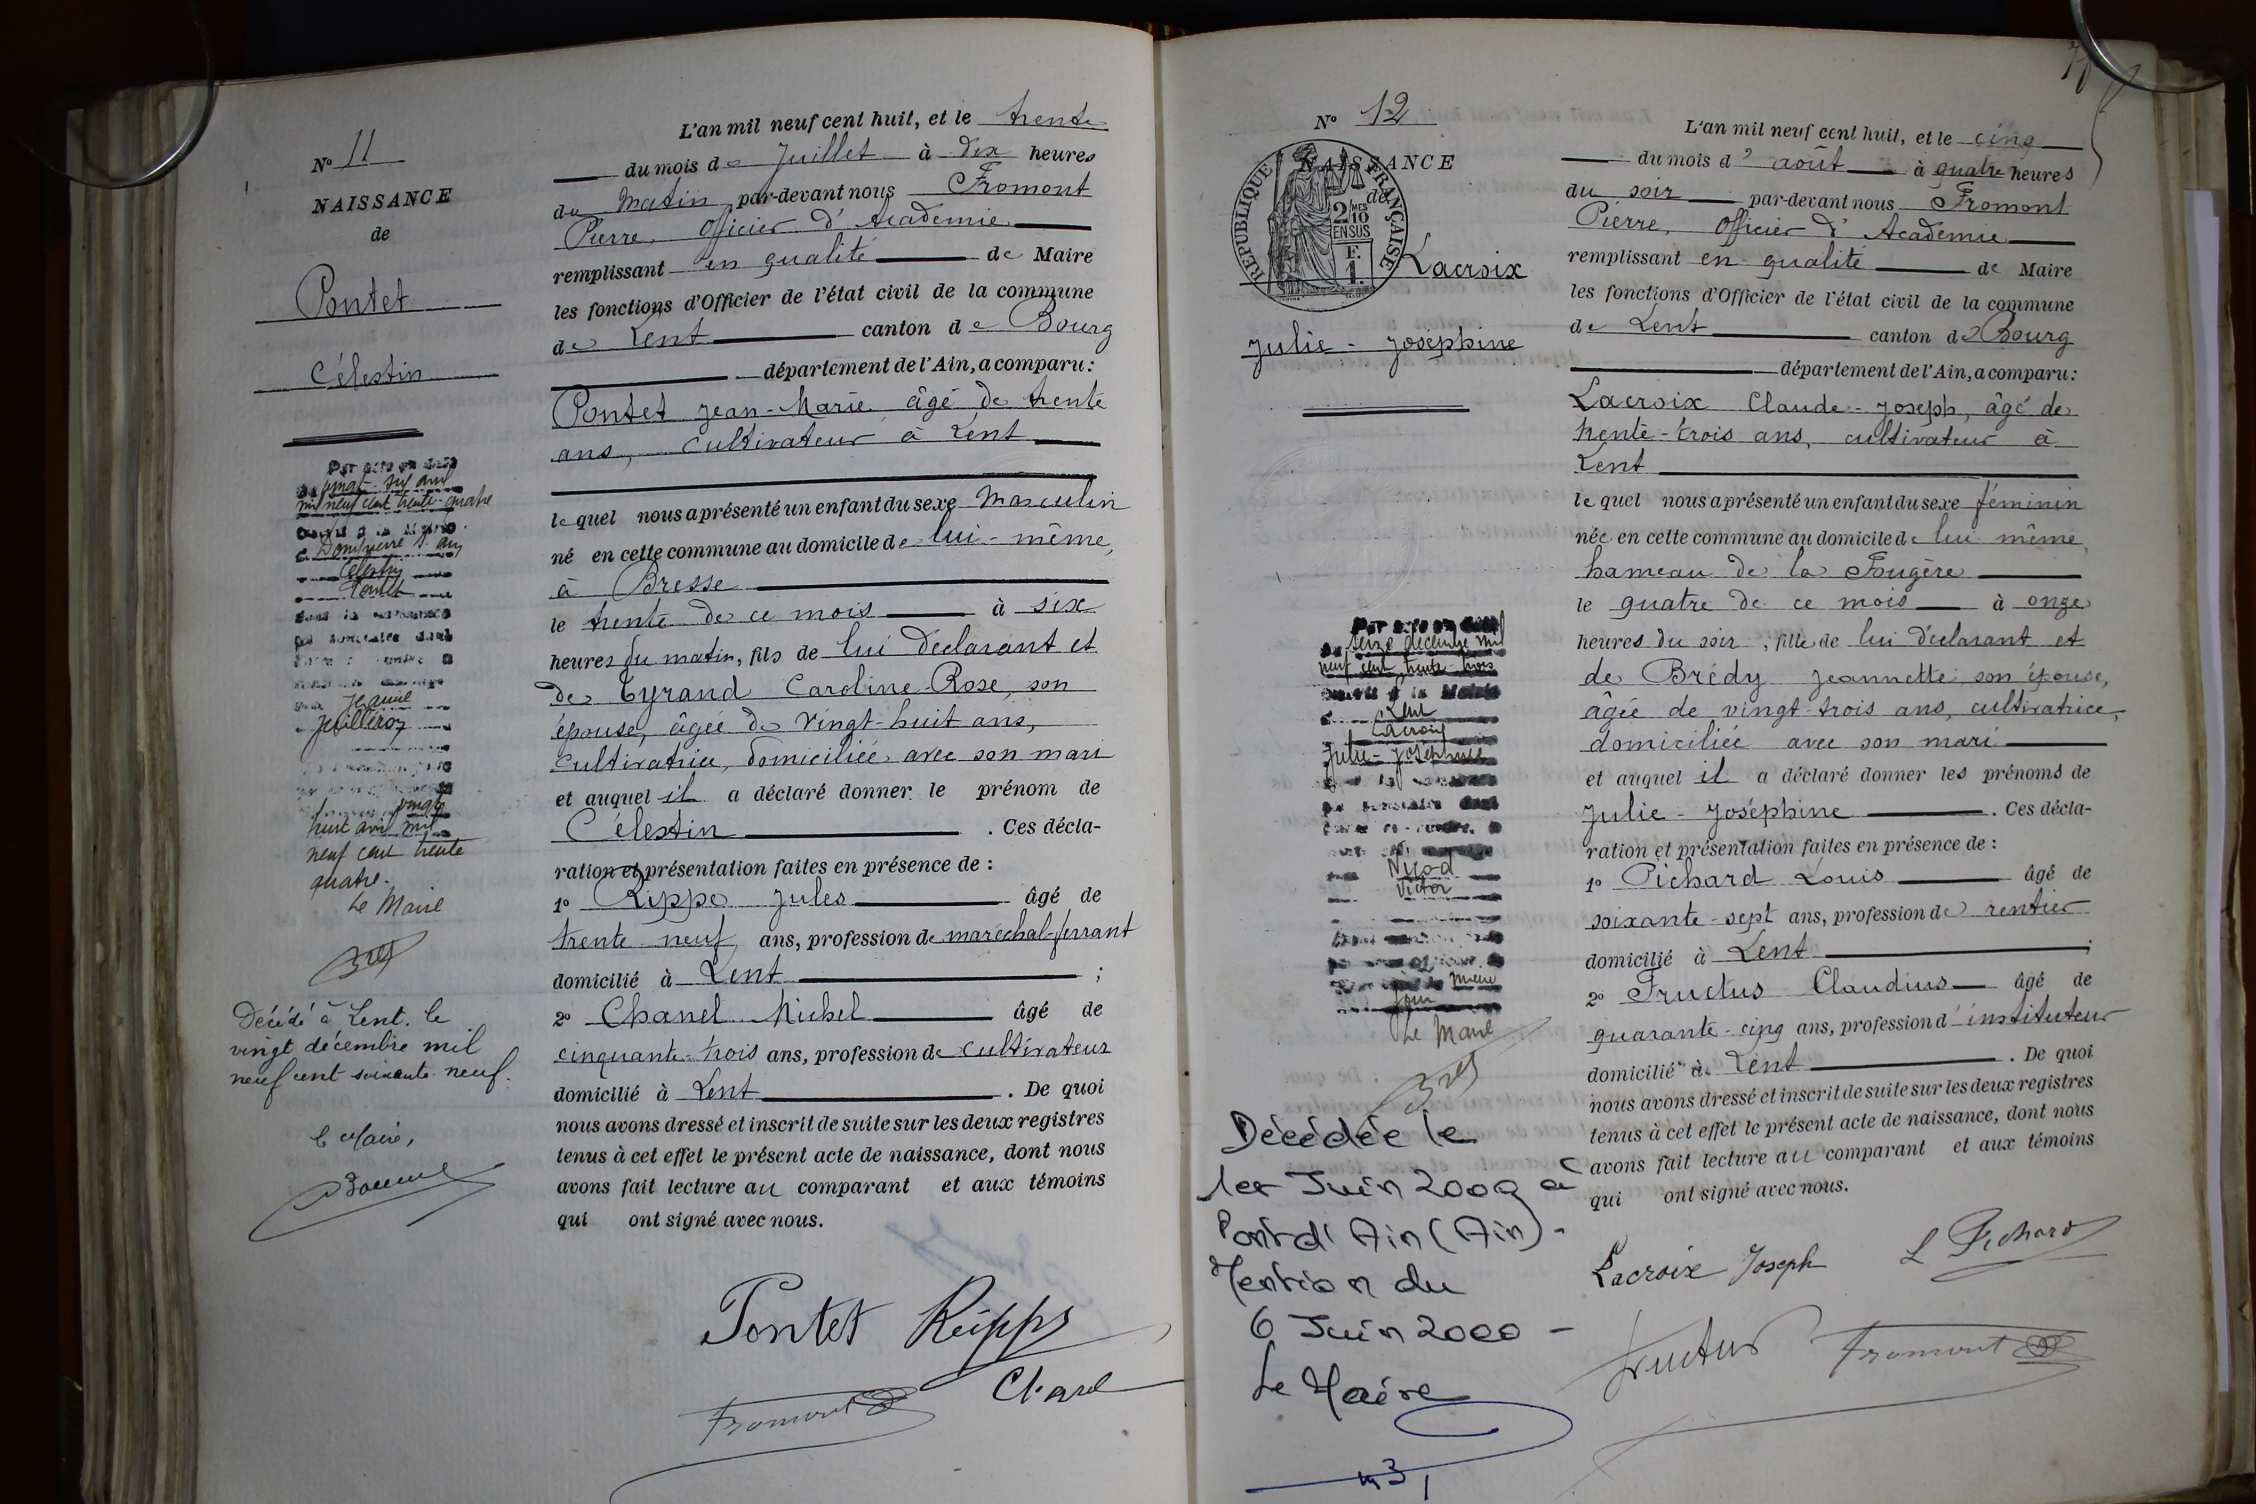 N° 11
NAISSANCE
de
Pontet
Célestin
Par acte en date
du vingt-six avril
mil neuf cent trente-quatre
dressé à la Mairie
Dompierre s. ain
Célestin
Pontet
Jeanne
vingt
huit avril mil
neuf cent trente
quatre.
Le Maire
Décédé à Lent. le
vingt décembre mil
neuf cent soixante neuf.
le Maire,
L'an mil neuf cent huit, et le trente
du mois de Juillet à dix heures
du matin par-devant nous Fromont
Pierre, Officier d'Académie
remplissant en qualité de Maire
les fonctions d'Officier de l'état civil de la commune
de Lent canton de Bourg
département de l'Ain, a comparu:
Pontet Jean-Marie âgé de trente
ans, cultivateur à Lent
lequel nous a présenté un enfant du sexe Masculin
né en cette commune au domicile de lui-même,
à Bresse
le trente de ce mois à six
heures du matin, fils de lui déclarant et
de Tyrand Caroline-Rose, son
épouse, âgée de vingt-huit ans,
cultivatrice, domiciliée avec son mari
et auquel il a déclaré donner le prénom de
Célestin . Ces décla-
ration et présentation faites en présence de :
1° Rippe Jules âgé de
trente neuf ans, profession de maréchal-ferrant
domicilié à Lent ;
2° Chanel Michel âgé de
cinquante-trois ans, profession de cultivateur
domicilié à Lent . De quoi
nous avons dressé et inscrit de suite sur les deux registres
tenus à cet effet le présent acte de naissance, dont nous
avons fait lecture au comparant et aux témoins
qui ont signé avec nous.
Pontet Rippe
Fromont Chanel
N° 12
NAISSANCE
de
REPUBLIQUE FRANÇAISE
2 MES 10 EN SUS
F. 1.
Lacroix
Julie-Joséphine
Par acte en date
du seize décembre mil
neuf cent trente-trois
dressé à la Mairie
Lent
Lacroix
Julie-Joséphine
Nicod
Victor
même
jour
Le Maire
Décédée le
1er Juin 2000 à
Pont d'Ain (In) -
Mention du
6 Juin 2000 -
Le Maire
L'an mil neuf cent huit, et le cinq
du mois d'août à quatre heures
du soir par-devant nous Fromont
Pierre, Officier d'Académie
remplissant en qualité de Maire
les fonctions d'Officier de l'état civil de la commune
de Lent canton de Bourg
département de l'Ain, a comparu:
Lacroix Claude-Joseph, âgé de
trente-trois ans, cultivateur à
Lent
lequel nous a présenté un enfant du sexe féminin
née en cette commune au domicile de lui même,
hameau de la Fougère
le quatre de ce mois à onze
heures du soir, fille de lui déclarant et
de Brédy Jeannette, son épouse,
âgée de vingt-trois ans, cultivatrice,
domiciliée avec son mari
et auquel il a déclaré donner les prénoms de
Julie-Joséphine . Ces décla-
ration et présentation faites en présence de :
1° Pichard Louis âgé de
soixante-sept ans, profession de rentier
domicilié à Lent ;
2° Fructus Claudius âgé de
quarante-cinq ans, profession d'instituteur
domicilié à Lent . De quoi
nous avons dressé et inscrit de suite sur les deux registres
tenus à cet effet le présent acte de naissance, dont nous
avons fait lecture au comparant et aux témoins
qui ont signé avec nous.
Lacroix Joseph L Pichard
Fructus Fromont